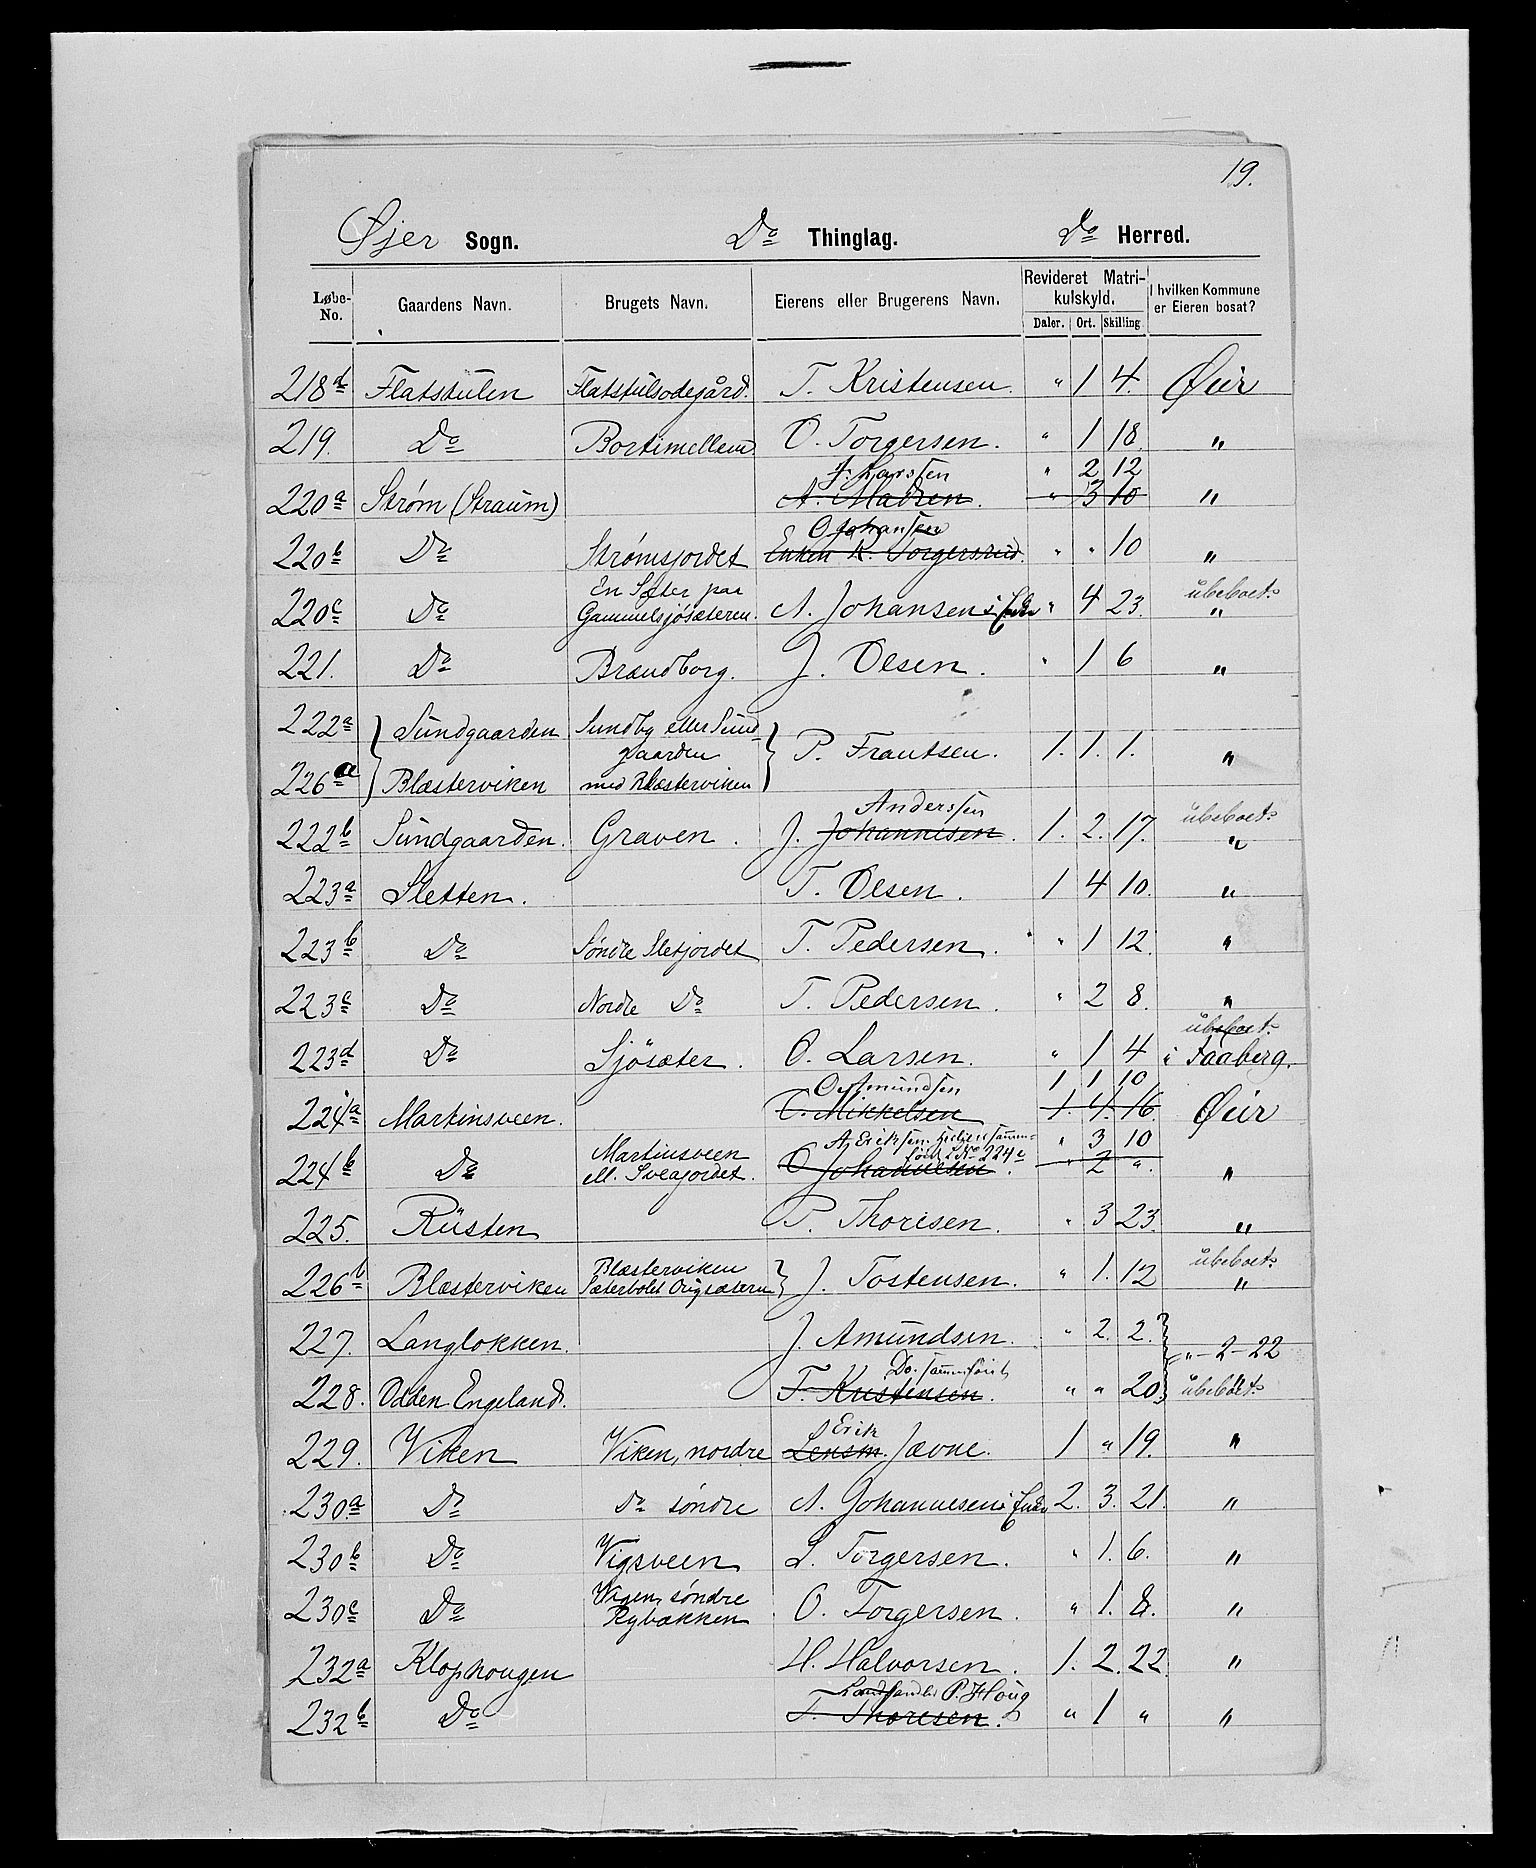 19.
Øjer Sogn. Do Thinglag. Do Herred.
Løbe-No. Gaardens Navn. Brugets Navn. Eierens eller Brugerens Navn. Revideret Matrikulskyld. Daler. Ort. Skilling. I hvilken Kommune er Eieren bosat?
218d Flatstulen Flatstulsødegård. T. Kristensen. " 1 4. Øier
219. Do Bortimellem O. Torgersen. " 1 18. "
J. Larssen " 2 12
220a Strøm (Straum) A. Madsen. " 3 10 "
O Johansen
220b Do Strømsjordet Enken K. Torgersrud. " " 10 "
En Sæter paa ubeboet.
220c Do Gammelsjösæteren. A. Johansen i " 4 23. "
221. Do Brandborg. J. Olsen. " 1 6 "
222a Sundgaarden Sundby eller Sund-
gaarden P. Frantsen. 1. 1. 1. "
226a Blæsterviken med Blæsterviken
Anderssen ubeboet.
222b Sundgaarden. Graven. J. Johannesen. 1. 2. 17. "
223a Sletten. T. Olsen. 1 4 10. "
223b Do Søndre Sletjordet T. Pedersen. " 1 12. "
223c Do Nordre Do T. Pedersen. " 2 8. "
ubeboet.
223d Do Sjösæter. O. Larsen. " 1 4 i Faaberg.
O Amundsen 1 1 10
224a Martinsveen. T. Mikkelsen 1. 4. 16. Øier
Martinsveen A Eriksen. " 3 10
224b Do ell. Sveajordet. O Johannesen. " 2 ". "
No 224c
225. Rusten P. Thoresen. " 3 23. "
Blæsterviken ubeboet.
226b Blæsterviken Sæterbolet J. Tostensen. " 1. 12 "
227. Langlokken. J. Amundsen. " 2. 2.
" - 2 - 22
Do. sammføiet
228. Odden Engeland. T. Kristensen. " " 20 ubeboet.
Erik
229. Viken Viken, nordre Lensm. Jævne. 1 " 19. "
230a Do Do søndre A. Johannesen i 2. 3. 21. "
230b Do Vigsveen L. Torgersen. " 1. 6. "
Vigen, søndre
230c Do Rybækken O. Torgersen. " 1. 8. "
232a Klophougen H. Halvorsen. 1. 2. 22. "
Landhandler P. Houg
232b Do T. Thoresen. " 1 " "